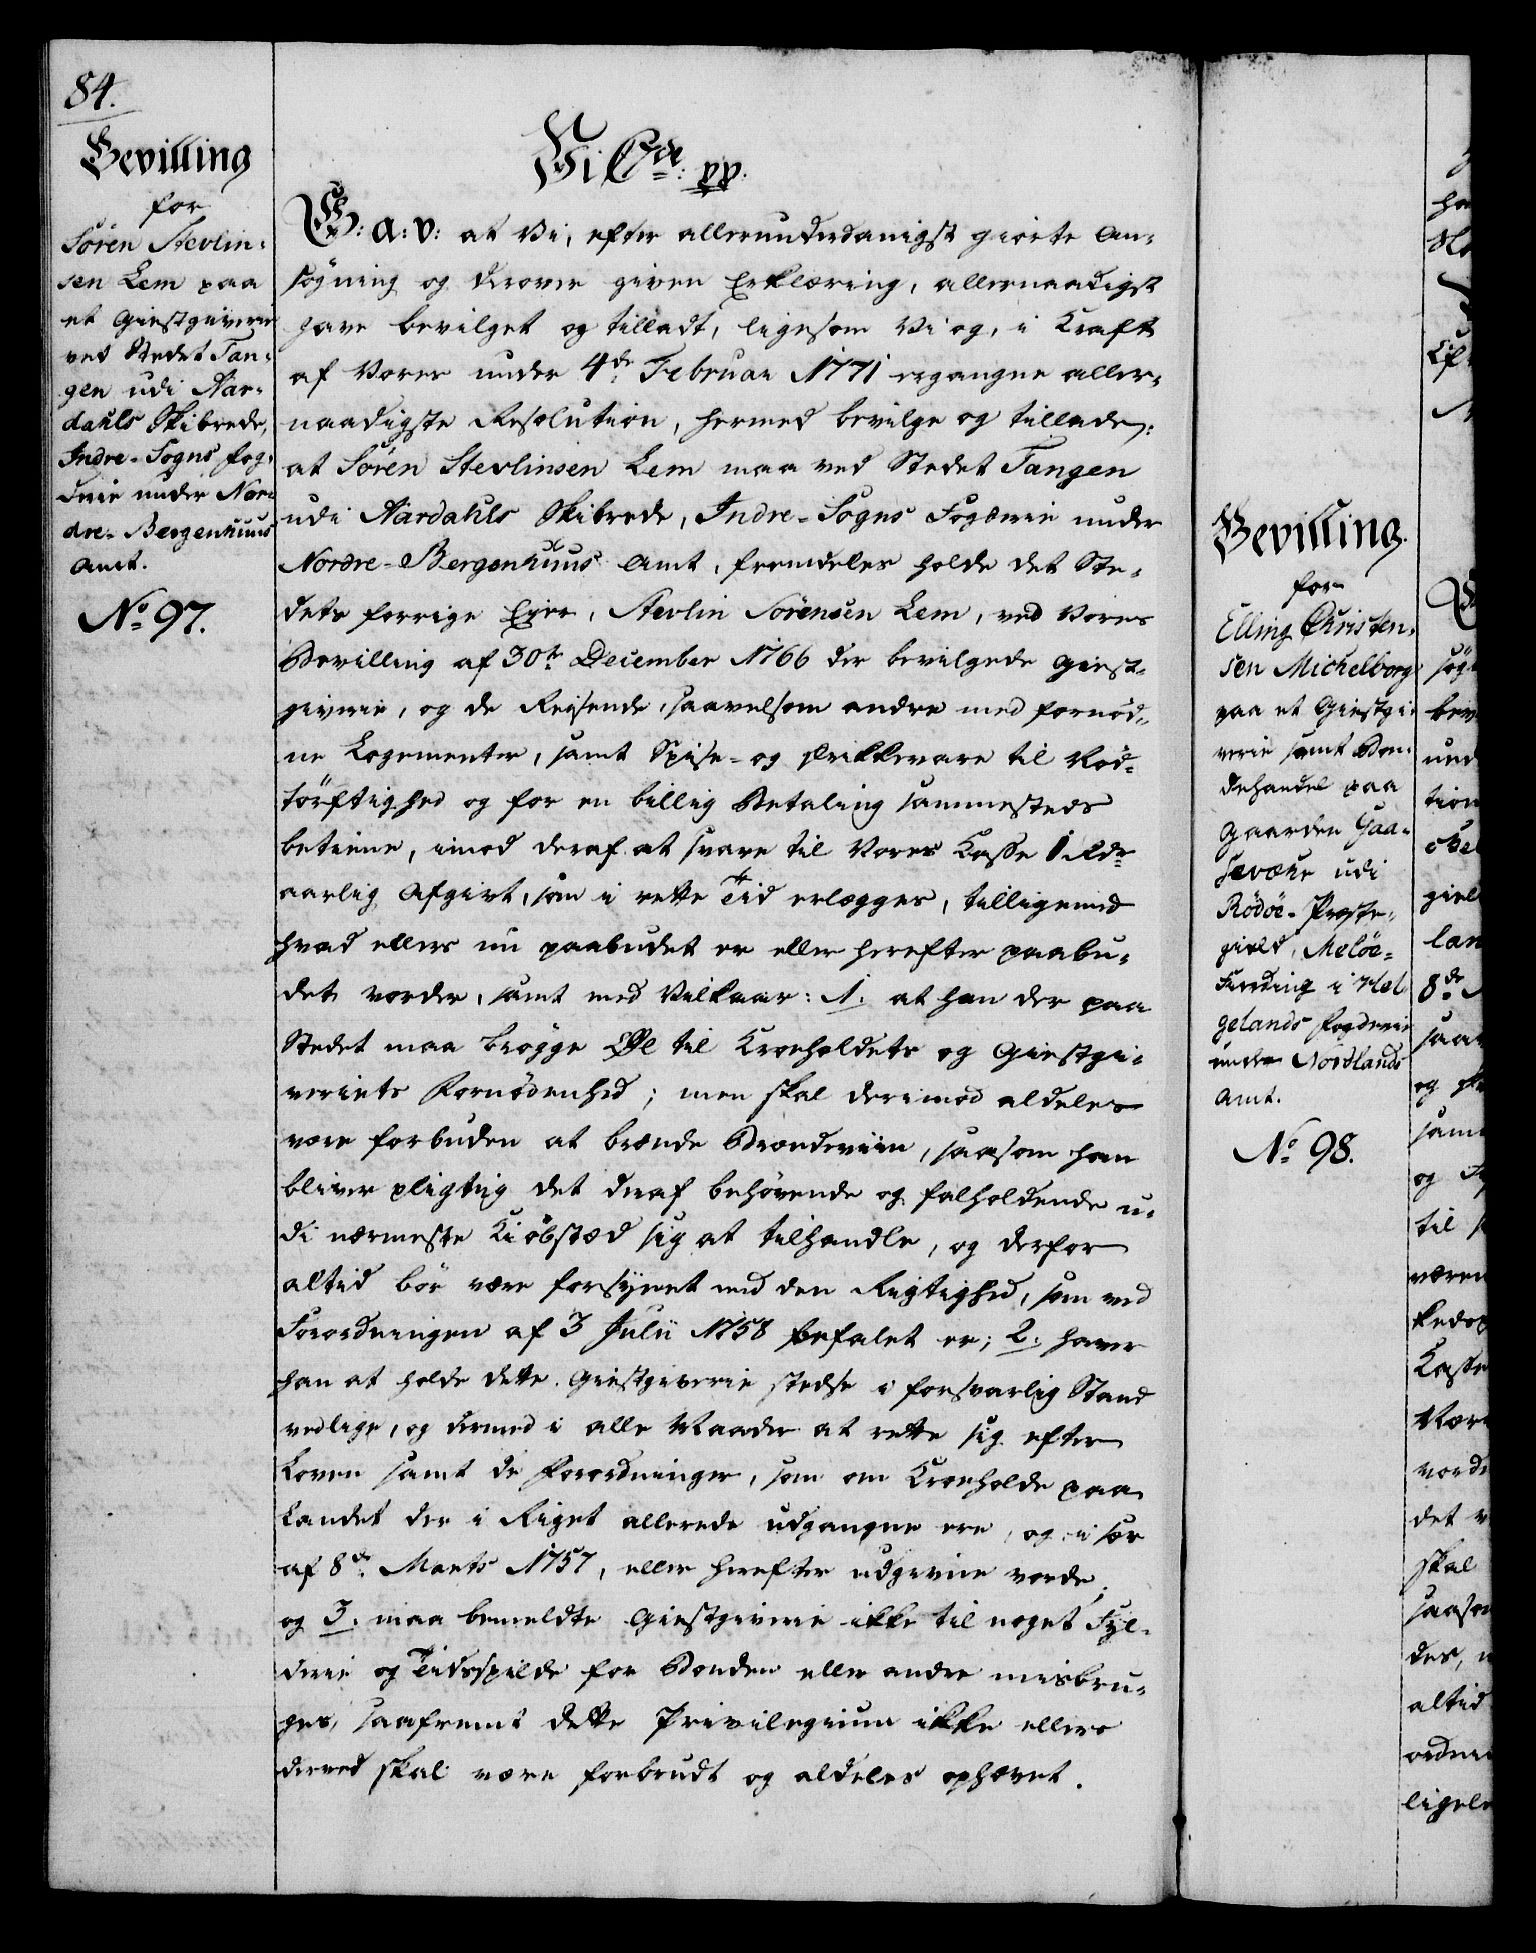 84.
Bevilling
for
Sören Stevlin-
sen Lem paa
et Giestgiverie
ved Stedet Tan-
gen udi Aar-
dahls Skibrede,
Indre-Sogns Fog-
derie under Nor-
dre-Bergenhuus
Amt.
No. 97.
Vi C 7de: pp.
G: A: V: at Vi, efter allerunderdanigst giorte An-
søgning og derover given Erklæring, allernaadigst
have bevilget og tilladt, ligesom Vi og, i Kraft
af Vores under 4de Februar 1771 ergangne aller-
naadigste Resolution, hermed bevilge og tillade:
at Sören Stevlinsen Lem maa ved Stedet Tangen
udi Aardahls Skibrede, Indre-Sogns Fogderie under
Nordre-Bergenhuus Amt, fremdeles holde det Ste-
dets forrige Eyer, Stevlin Sörensen Lem, ved Vores
Bevilling af 30te December 1766 der bevilgede Giest-
giverie, og de Reisende, saavelsom andre med fornød-
ne Logementer, samt Spise- og Drikkevare til Nød-
törftighed og for en billig Betaling sammesteds
betiene, imod deraf at svare til Vores Casse 1 Rdr
aarlig Afgivt, som i rette Tid erlægges, tilligemed
hvad ellers nu paabudet er eller herefter paabu-
det vorder, samt med Vilkaar: 1. at han der paa
Stedet maa brögge Øl til Kroeholdets og Giestgi-
veriets Fornödenhed; men skal derimod aldeles
være forbuden at brænde Brændeviin, saasom han
bliver pligtig det deraf behövende og falholdende u-
di nærmeste Kiöbstæd sig at tilhandle, og derfor
altid bör være forsÿnet med den Rigtighed, som ved
Forordningen af 3 Julii 1758 befalet er; 2. haver
han at holde dette Giestgiverie stedse i forsvarlig Stand
vedlige, og dermed i alle Maader at rette sig efter
Loven samt de Forordninger, som om Kroeholde paa
Landet der i Riget allerede udgangne ere, og i sær
af 8de Marts 1757, eller herefter udgivne vorde;
og 3. maa bemeldte Giestgiverie ikke til noget Fyl-
derie og Tidsspilde for Bonden eller andre misbru-
ges, saafremt dette Privilegium ikke ellers
derved skal være forbrudt og aldeles ophævet.
Bevilling.
for
Elling Christen-
sen Michelborg
paa et Giestgi-
verie samt Bon-
dehandel paa
Gaarden Gaa-
sevær udi
Rödöe-Præste-
gield, Melöe-
Fierding i Hel
gelands Fogderie
under Nordlands
Amt.
No. 98.